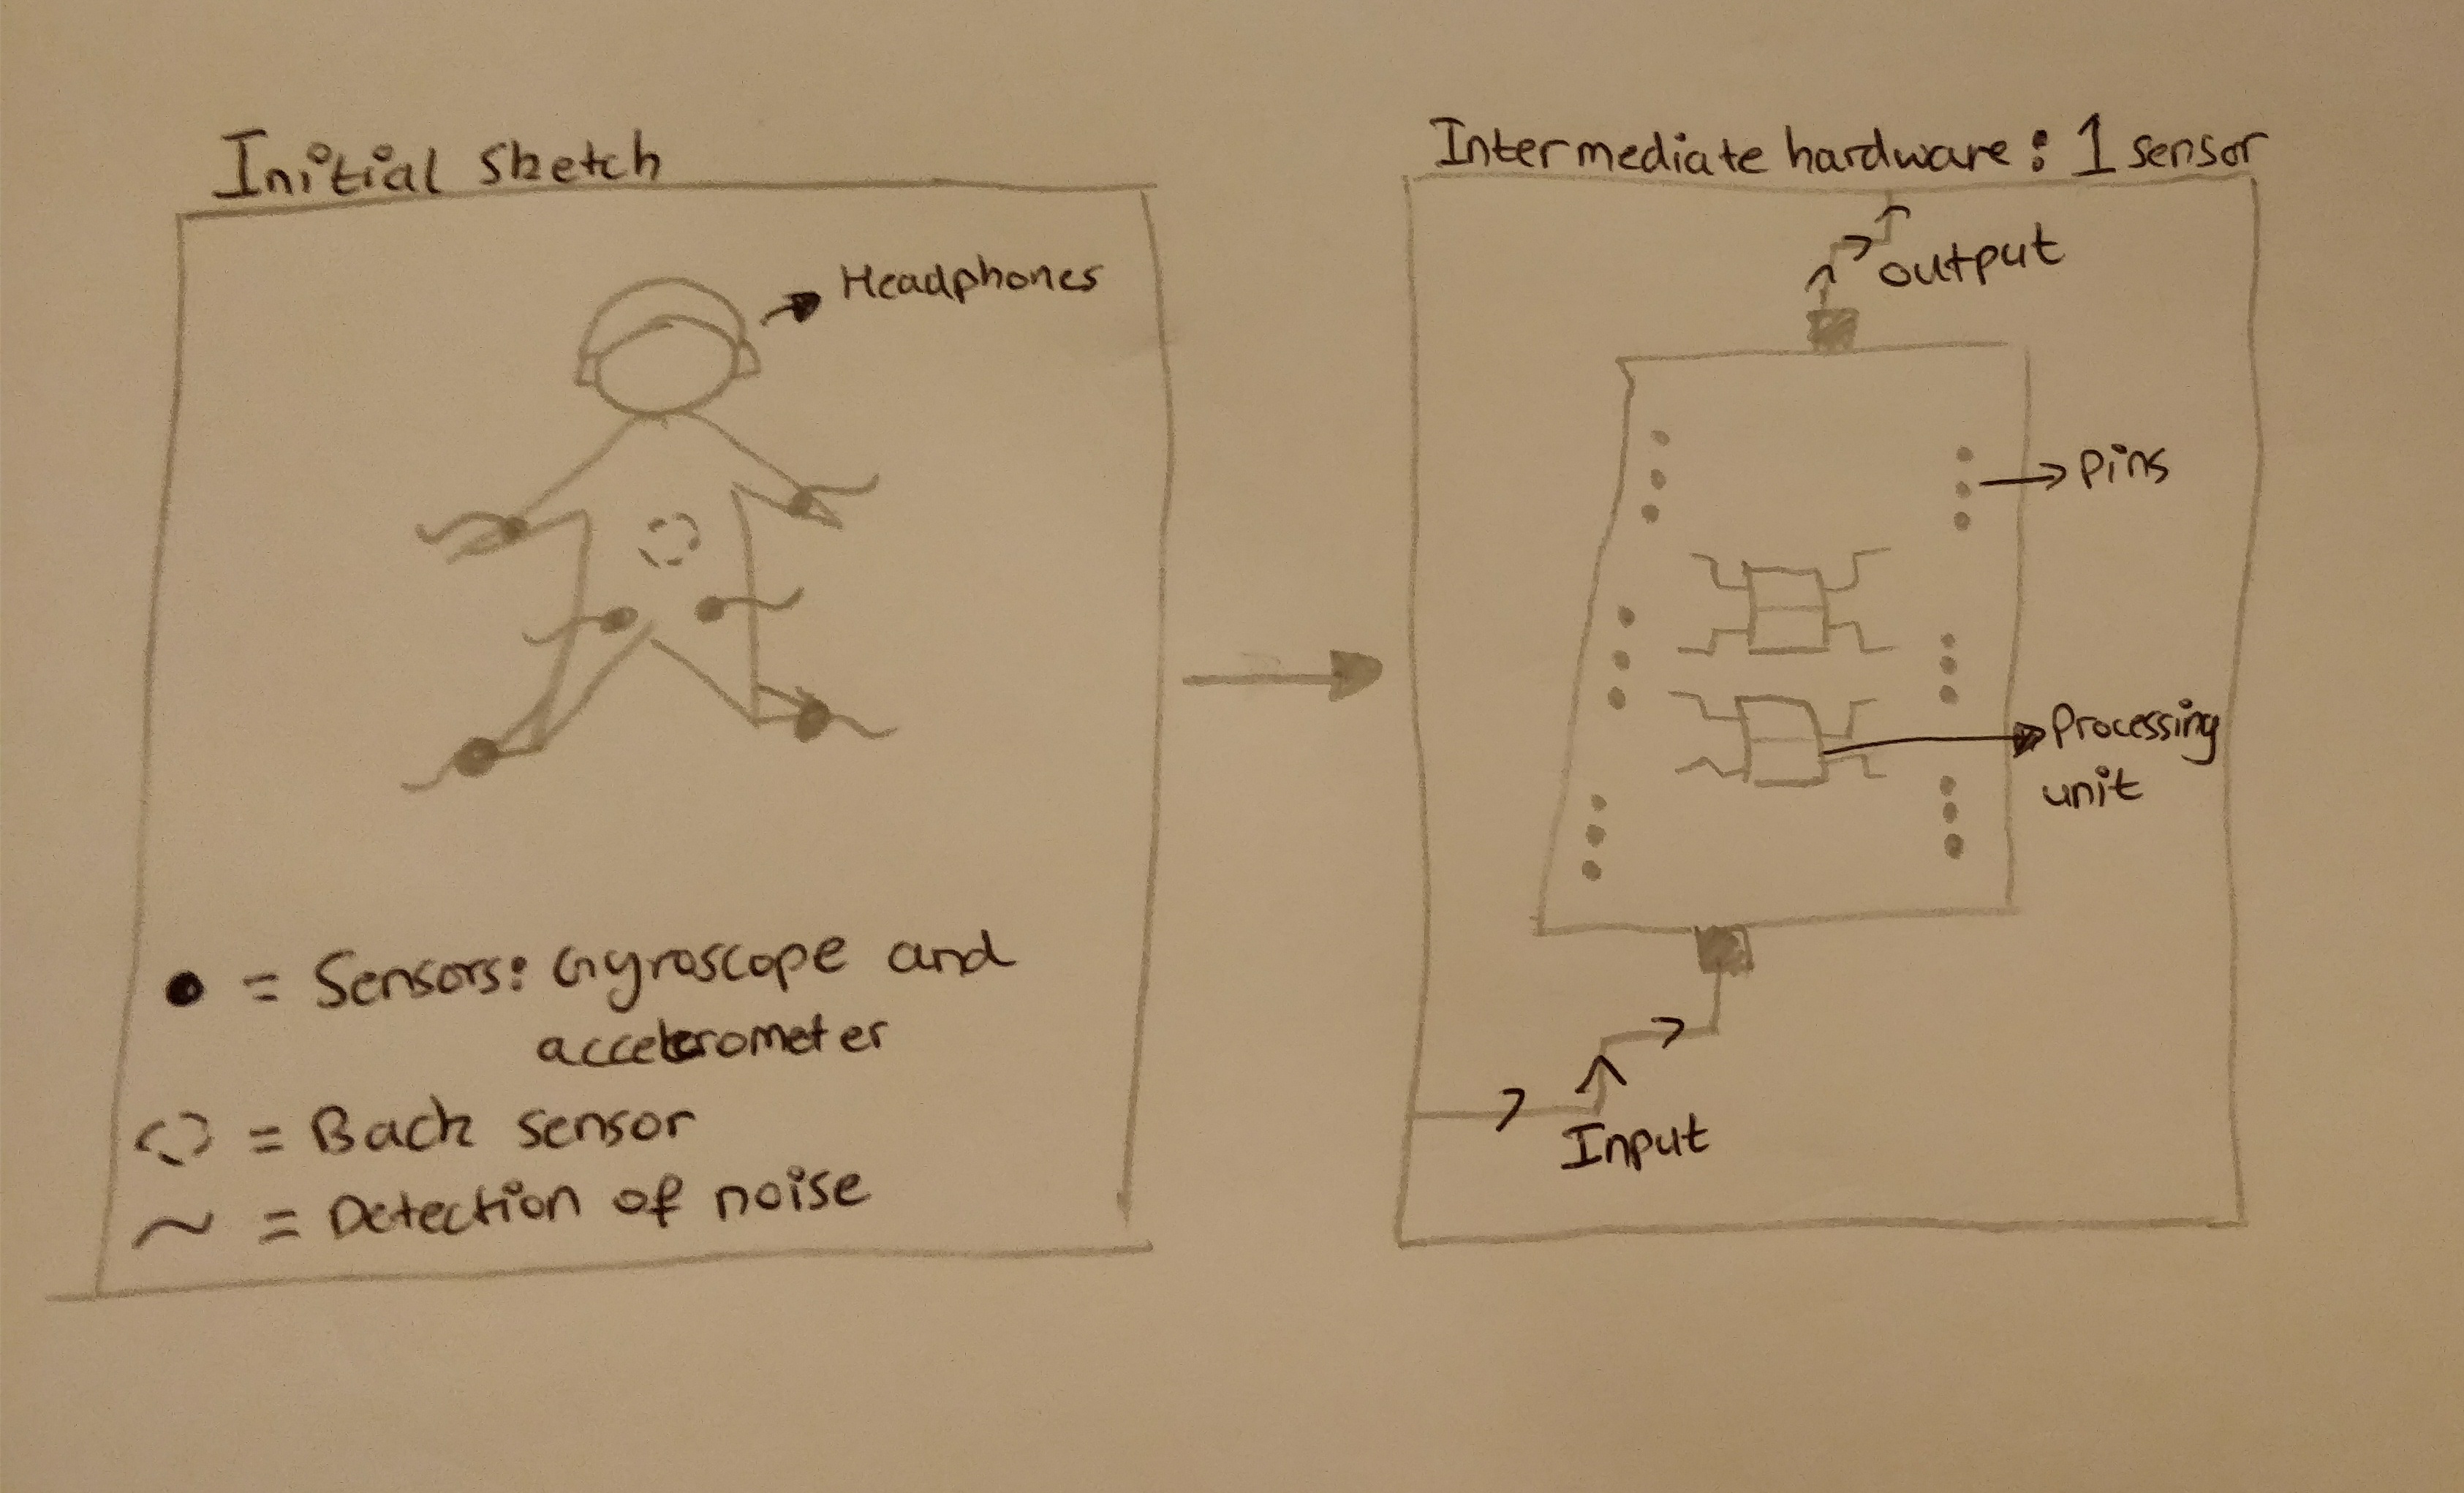 Initial sketch
Headphones
● = Sensors: Gyroscope and
accelerometer
= Back sensor
~ = Detection of noise
Intermediate hardware: 1 sensor
output
Pins
Processing
unit
Input